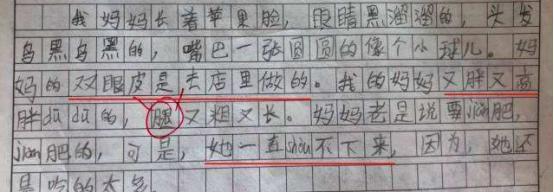 我妈妈长着苹果脸,眼睛黑溜溜的,头发
乌黑乌黑的,嘴巴一张圆圆的像个小球儿。妈
妈的双眼皮是去店里做的。我的妈妈又胖又高
胖dū dū的,腿又粗又长。妈妈老是说要jiǎn肥,
jiǎn肥的,可是,她一直shòu不下来,因为,她还
是吃的太多